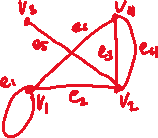 v₃ e₆ v₄
e₅ e₃ e₄
e₁ v₁ e₂ v₂